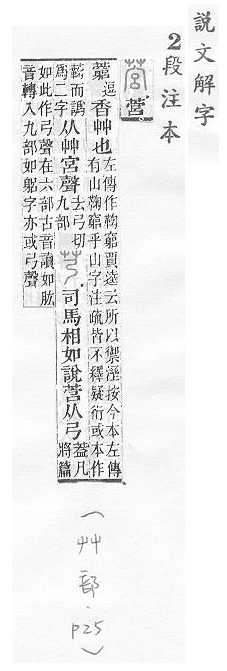 說文解字
2段注本
营 营
藭逗香艸也左傳作鞠窮賈逵云所以禦溼按今本左傳有山鞠窮乎山字注疏皆不釋疑衍或本作
藭而譌爲二字从艸宮聲去弓切九部芎司馬相如說营从弓葢凡將篇
如此作弓聲在六部古音讀如肱音轉入九部如躳字亦或弓聲
(艸部.p25)